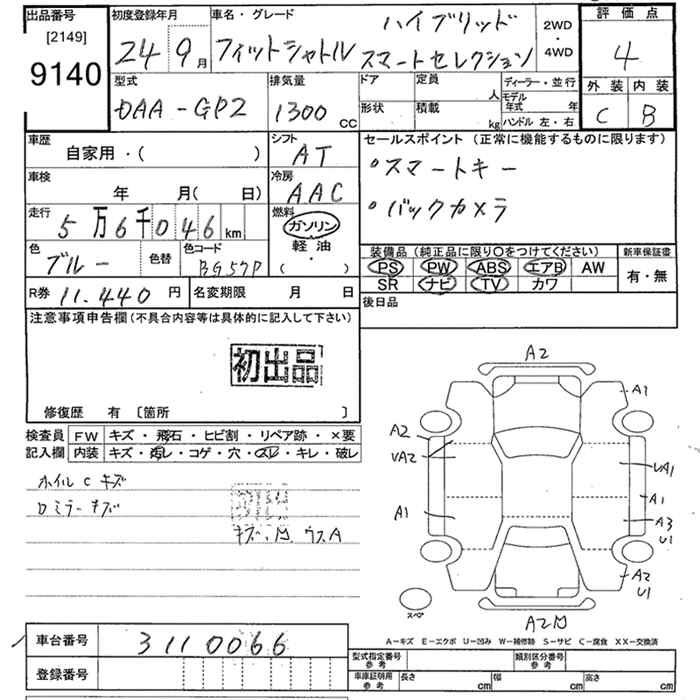 出品番号 初度登録年月 車名・グレード ハイブリッド 2WD・4WD 評価点
[2149]
9140 24 9月 フィットシャトル スマートセレクション 4
型式 排気量 ドア 定員 人 ディーラー・並行 外装 内装
DAA-GP2 1300 CC 形状 積載 kg モデル年式 年 ハンドル 左・右 C B
車歴 自家用・( ) シフト AT セールスポイント (正常に機能するものに限ります)
車検 年 月( 日) 冷房 AAC °スマートキー
走行 5万6千046km 燃料 ガソリン °バックカメラ
軽油
( ・ )
色 ブルー 色替 色コード BG57P 装備品(純正品に限り○をつけてください) 新車保証書
PS PW ABS エアB AW 有・無
SR ナビ TV カワ
R券 11.440円 名変期限 月 日 後日品
注意事項申告欄(不具合内容等は具体的に記入して下さい)
初出品
修復歴 有 〔箇所 〕
検査員 FW キズ・飛石・ヒビ割・リペア跡・×要
記入欄 内装 キズ・汚レ・コゲ・穴・スレ・キレ・破レ
ホイルCキズ
ロミラーキズ
A2
A1
A2
VA2
VA1
A1
A1
A3
U1
A2
U1
スペア
A2
A-キズ E-エクボ U-凹み W-補修跡 S-サビ C-腐食 XX-交換済
車台番号 3110066
登録番号
型式指定番号 参考 類別区分番号 参考
車庫証明用 参考 長さ cm 幅 cm 高さ cm